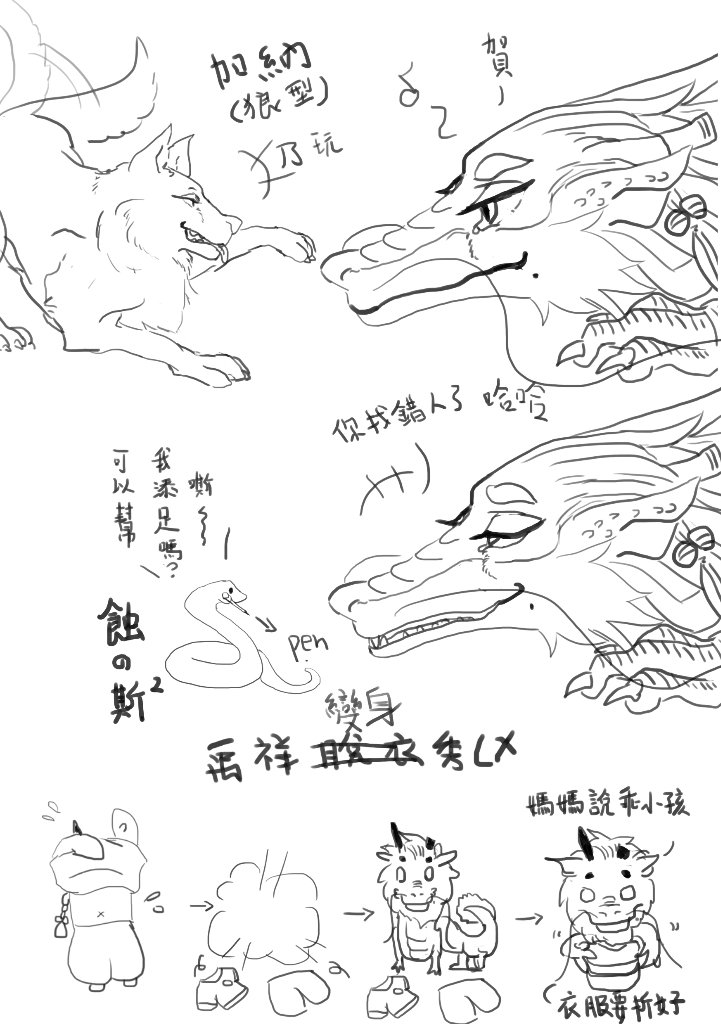 加納
(狼型)
乃玩
賀
你找錯人了 哈哈
嘶~~
我添足嗎?
可以幫
蝕の斯²
pen
變身
禹祥脫衣秀LX
媽媽說乖小孩
衣服要折好